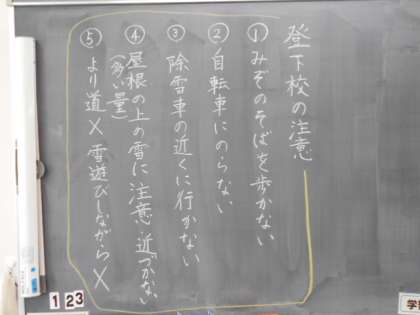 登下校の注意
① みぞのそばを歩かない
② 自転車にのらない
③ 除雪車の近くに行かない
④ 屋根の上の雪に注意 近づかない
(多い量)
⑤ より道× 雪遊びしながら×
1 2 3
学